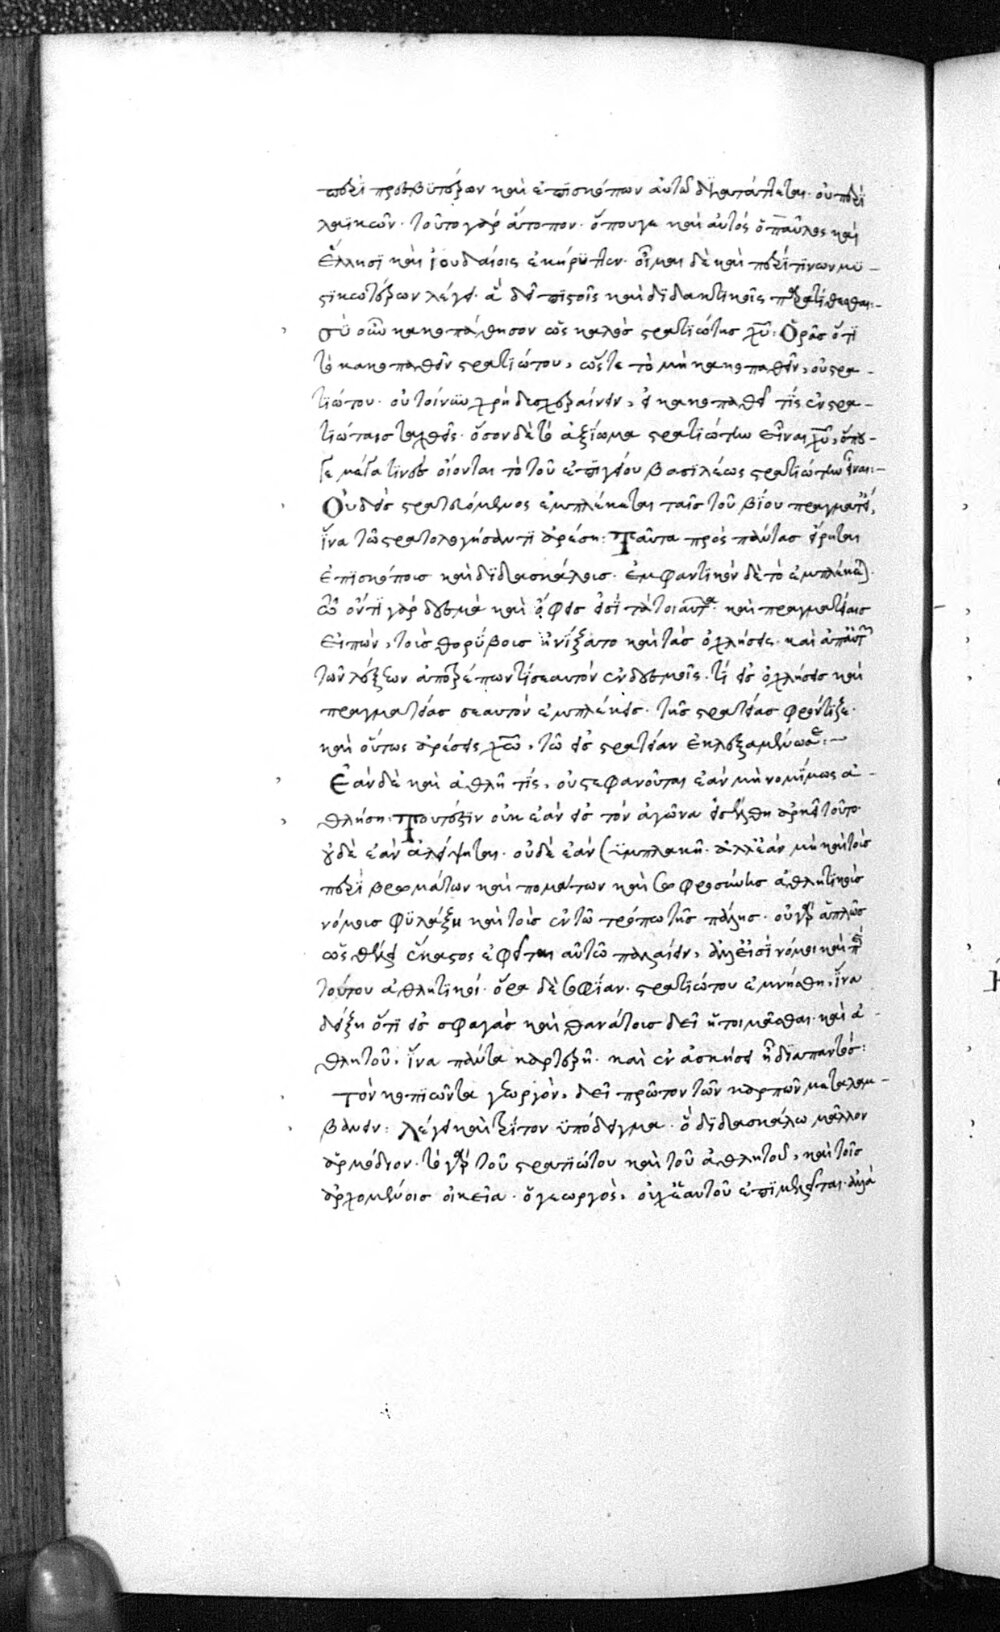 περὶ πρεσβυτέρων καὶ ἐπισκόπων αὐτῶ διατάττεται· οὐ περὶ
λαϊκῶν· τοῦτο γὰρ ἄτοπον· ὅπουγε καὶ αὐτὸς ὁ παῦλος καὶ
ἕλλησι καὶ ἰουδαίοις ἐκήρυττεν· οἶμαι δὲ καὶ περί τινων μυ-
στικωτέρων λέγει· ἃ δεῖ πιστοῖς καὶ διδακτικοῖς παρατίθεσθαι:-
σὺ οὖν κακοπάθησον ὡς καλὸς στρατιώτης χυ: Ὁρᾶς ὅτι
τὸ κακοπαθεῖν στρατιώτου, ὥστε τὸ μὴ κακοπαθεῖν, οὐ στρα-
τιώτου· οὐ τοίνυν χρὴ δυσχεραίνειν, εἰ κακοπαθεῖ τίς ἐν στρα-
τιώταις ταχθείς· ὅσον δὲ τὸ ἀξίωμα στρατιώτην εἶναι χυ, ὅπου-
γε μέγα τινὲς οἴονται τὸ τοῦ ἐπιγείου βασιλέως στρατιώτην εἶναι:-
Οὐδεὶς στρατευόμενος ἐμπλέκεται ταῖς τοῦ βίου πραγματείαις,
ἵνα τῶ στρατολογήσαντι ἀρέση: Ταῦτα πρὸς πάντας εἴρηται
ἐπισκόποις καὶ διδασκάλοις· ἐμφαντικὸν δὲ τὸ ἐμπλέκεται·
τῶ ὄντι γὰρ δεσμὰ καὶ ὄφεις εἰσὶ τὰ τοιαῦτα· καὶ πραγματείαις
εἰπὼν, τοὺς θορύβους ἠνίξατο καὶ τὰς ὀχλήσεις· καὶ
πραγματείας σεαυτὸν ἐμπλέκεις· τῆς στρατείας φρόντιζε·
καὶ οὕτως ἀρέσεις χω, τῶ εἰς στρατείαν ἐκλεξαμένω σε:-
Ἐὰν δὲ καὶ ἀθλῆ τίς, οὐ στεφανοῦται ἐὰν μὴ νομίμως ἀ-
θλήση: Τουτέστιν οὐκ ἐὰν εἰς τὸν ἀγῶνα εἰσέλθη ἀρκεῖ τοῦτο·
οὐδὲ ἐὰν ἀλείψηται· οὐδὲ ἐὰν συμπλακῆ· ἀλλ' ἐὰν μὴ καὶ τοὺς
περὶ βρωμάτων καὶ πομάτων καὶ σωφροσύνης ἀθλητικοὺς
νόμους φυλάξη καὶ τοὺς ἐν τῶ τρόπω τῆς πάλης· οὐ γὰρ ἁπλῶς
ὡς θέλει ἕκαστος ἐφεῖται αὐτῶ παλαίειν, ἀλλ' εἰσὶ νόμοι καὶ περὶ
τούτου ἀθλητικοί· ὅρα δὲ σοφίαν· στρατιώτου ἐμνήσθη, ἵνα
δείξη ὅτι εἰς σφαγὰς καὶ θανάτους δεῖ ἡτοιμᾶσθαι· καὶ ἀ-
θλητοῦ, ἵνα πάντα καρτερῆ· καὶ ἐν ἀσκήσει ἦ διαπαντός:
Τὸν κοπιῶντα γεωργὸν, δεῖ πρῶτον τῶν καρπῶν μεταλαμ-
βάνειν: Λέγει καὶ τρίτον ὑπόδειγμα· ὃ διδασκάλω μᾶλλον
ἁρμόδιον· τὸ γὰρ τοῦ στρατιώτου καὶ τοῦ ἀθλητοῦ, καὶ τοῖς
ἀρχομένοις οἰκεῖα· ὁ γεωργὸς, οὐχ ἑαυτοῦ ἐπιμελεῖται· ἀλλὰ